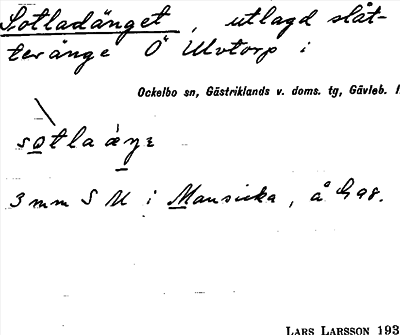 Sotladänget, utlagd slåt-
teränge Ö Ulvtorp i
Ockelbo sn, Gästriklands v. doms. tg, Gävleb. l
sotla
3 mm S U i Mansicka, å
LARS LARSSON 193